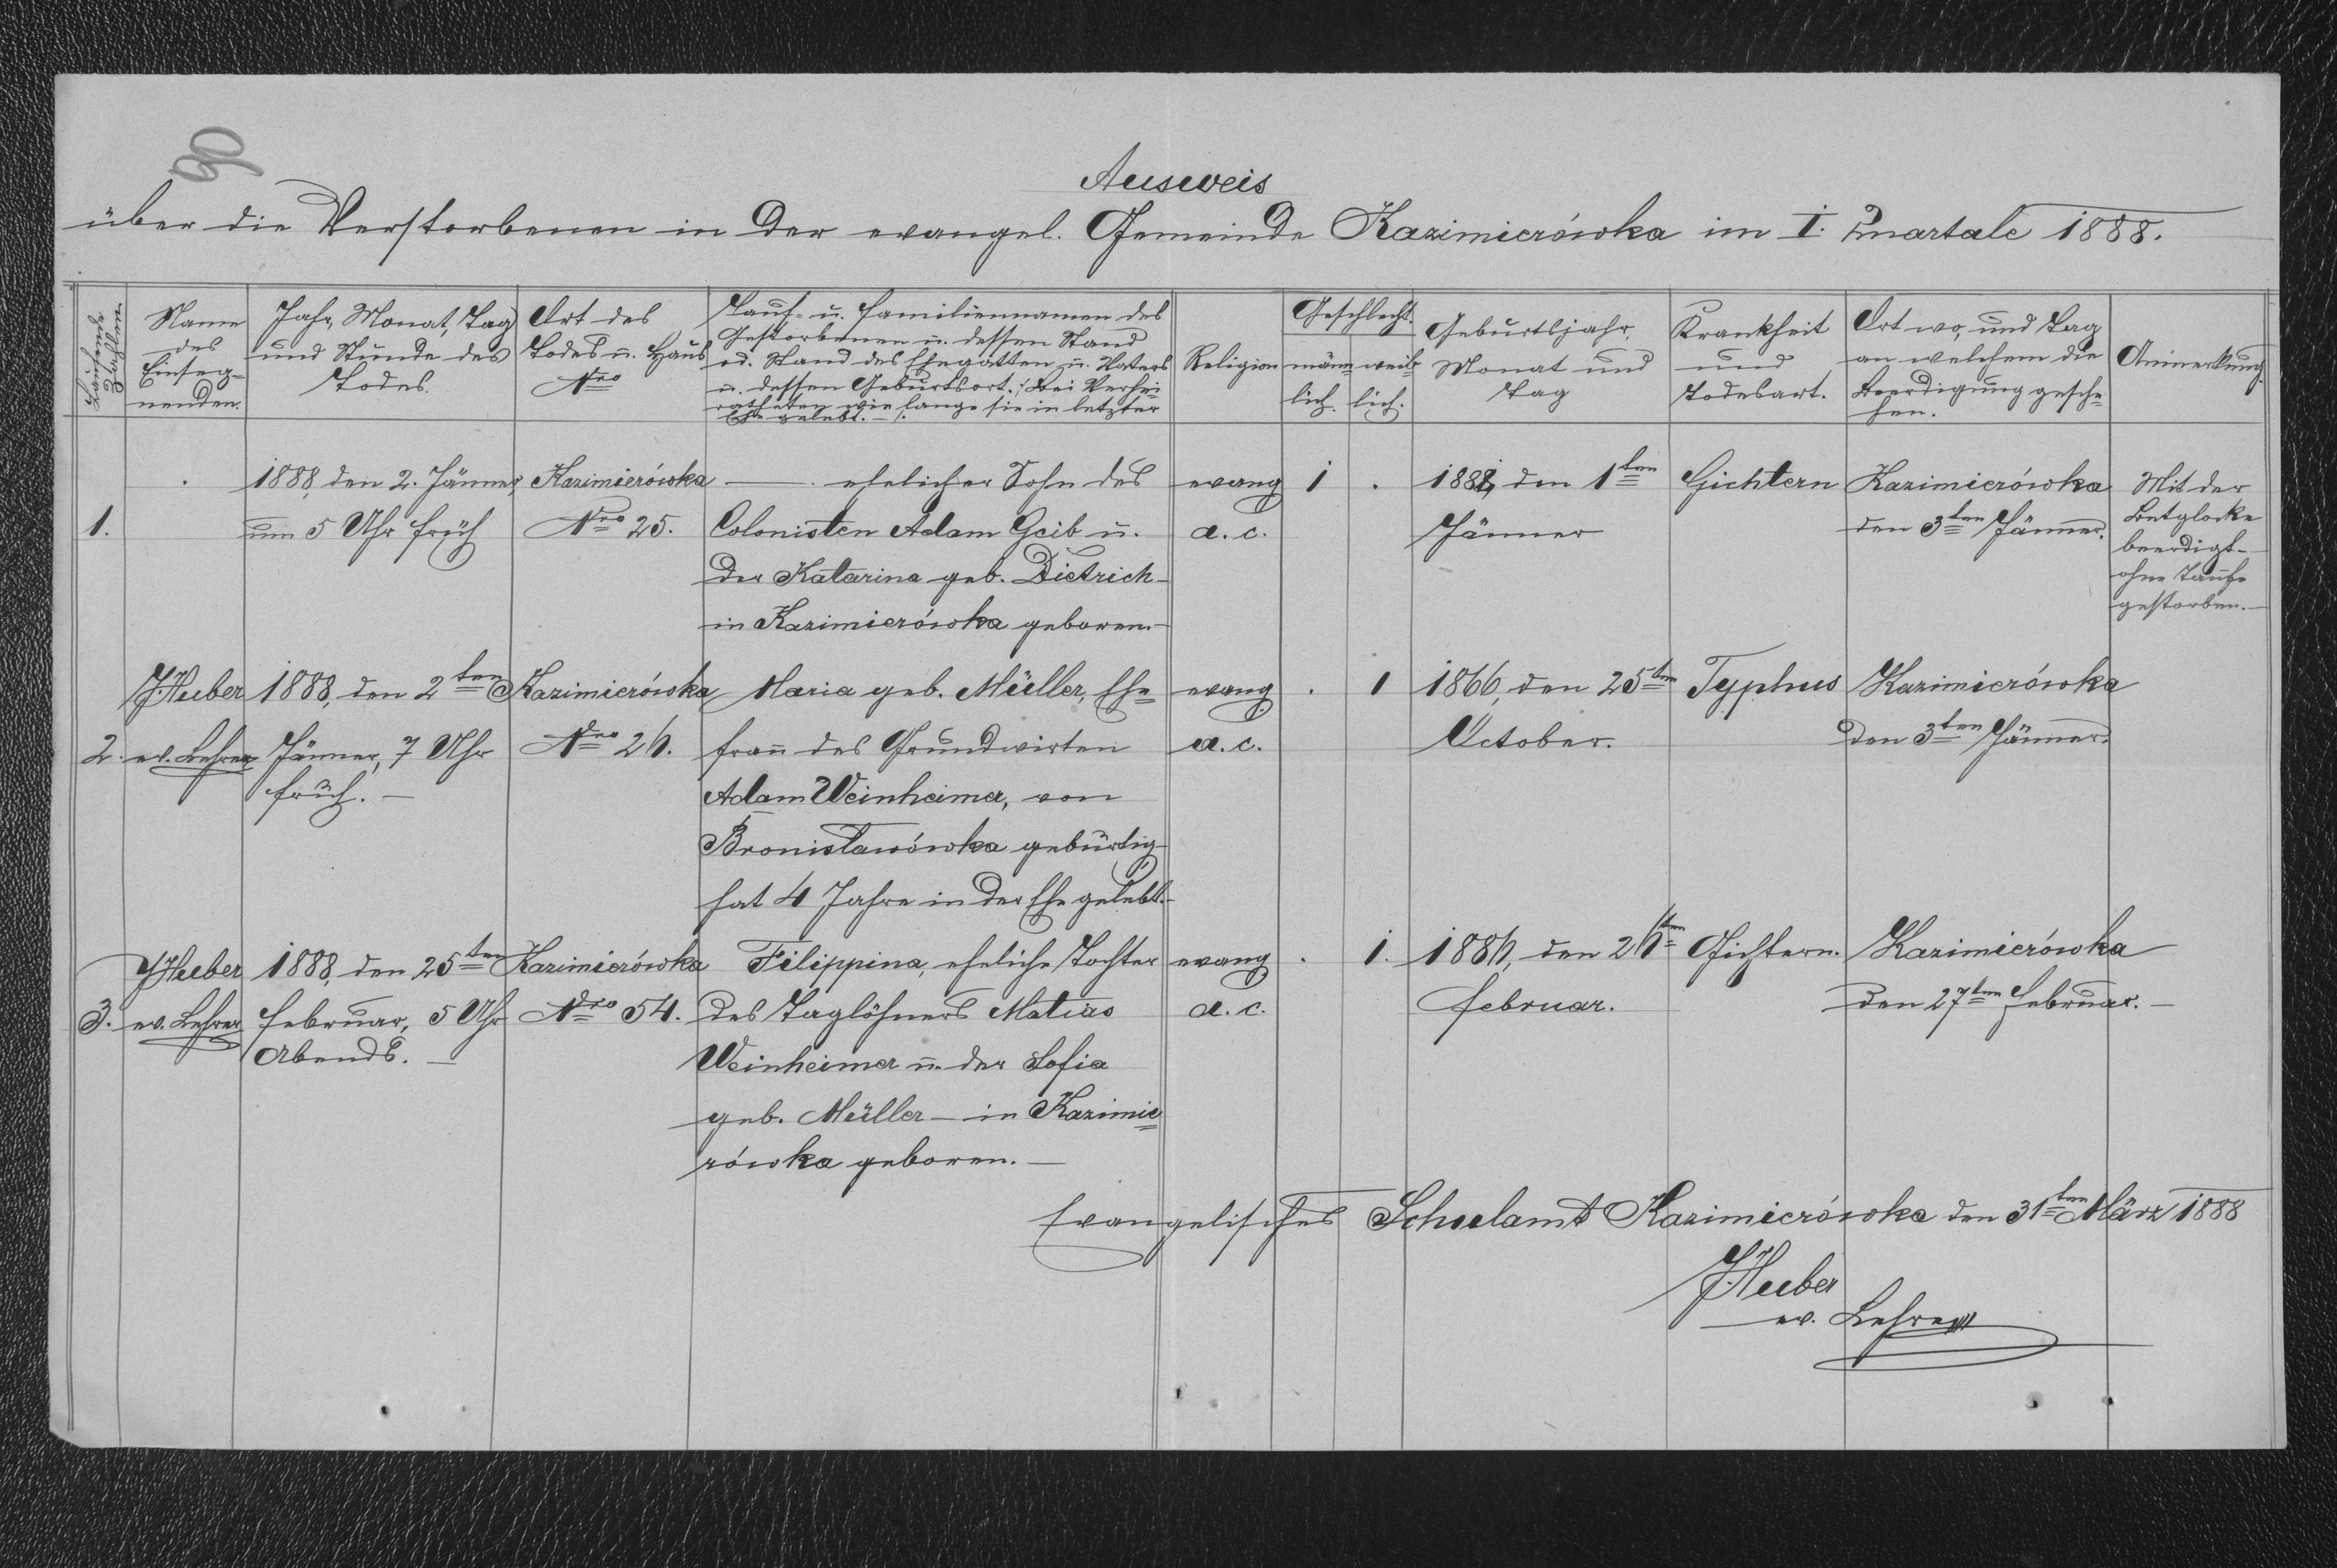 90
Ausweis
über die Verstorbenen in der evangel. Gemeinde Kazimierówka im I. Quartale 1888.
Laufende Postzahlen
Name des Einseg= nenden.
Jahr, Monat, Tag und Stunde des Todes.
Ort des Todes u. Haus Nro
Tauf= u. Familiennamen des
Gestorbenen u. dessen Stand
od. Stand des Ehegatten u. Vaters
u. dessen Geburtsort. /: Bei Verhei=
ratheten wie lange sie in letzter
Ehe gelebt. – :/
Religion
Geschlecht.
männ= lich.
weib= lich.
Geburtsjahr, Monat und Tag
Krankheit und Todesart.
Ort wo, und Tag an welchem die Beerdigung gesche= hen.
Anmerkung.
1. 1888, den 2. Jänner, um 5 Uhr früh
Kazimierówka Nro 25.
— ehelicher Sohn des
Colonisten Adam Geib u.
der Katarina geb. Dietrich –
in Kazimierówka geboren. –
evang a. c.
1 .
1888, den 1ten Jänner
Gichtern
Kazimierówka den 3ten Jänner.
Mit der
Betglocke
beerdigt –
ohne Taufe
gestorben. –
2. J. Huber ev. Lehrer
1888, den 2ten Jänner, 7 Uhr früh. –
Kazimierówka Nro 26.
Maria geb. Müller, Ehe=
frau des Grundwirten
Adam Weinheimer, von
Bronisławówka gebürtig –
hat 4 Jahre in der Ehe gelebt. –
evang. a. c.
. 1
1866, den 25ten October.
Typhus
Kazimierówka den 3ten Jänner.
3. J. Huber ev. Lehrer
1888, den 25ten Februar, 5 Uhr Abends. –
Kazimierówka Nro 54.
Filippina, eheliche Tochter
des Taglöhners Matias
Weinheimer u. der Sofia
geb. Müller – in Kazimie=
rówka geboren. –
evang a. c.
. 1.
1886, den 26ten Februar.
Gichtern.
Kazimierówka den 27ten Februar. –
Evangelisches Schulamt Kazimierówka den 31ten März 1888
J. Huber
ev. Lehrer